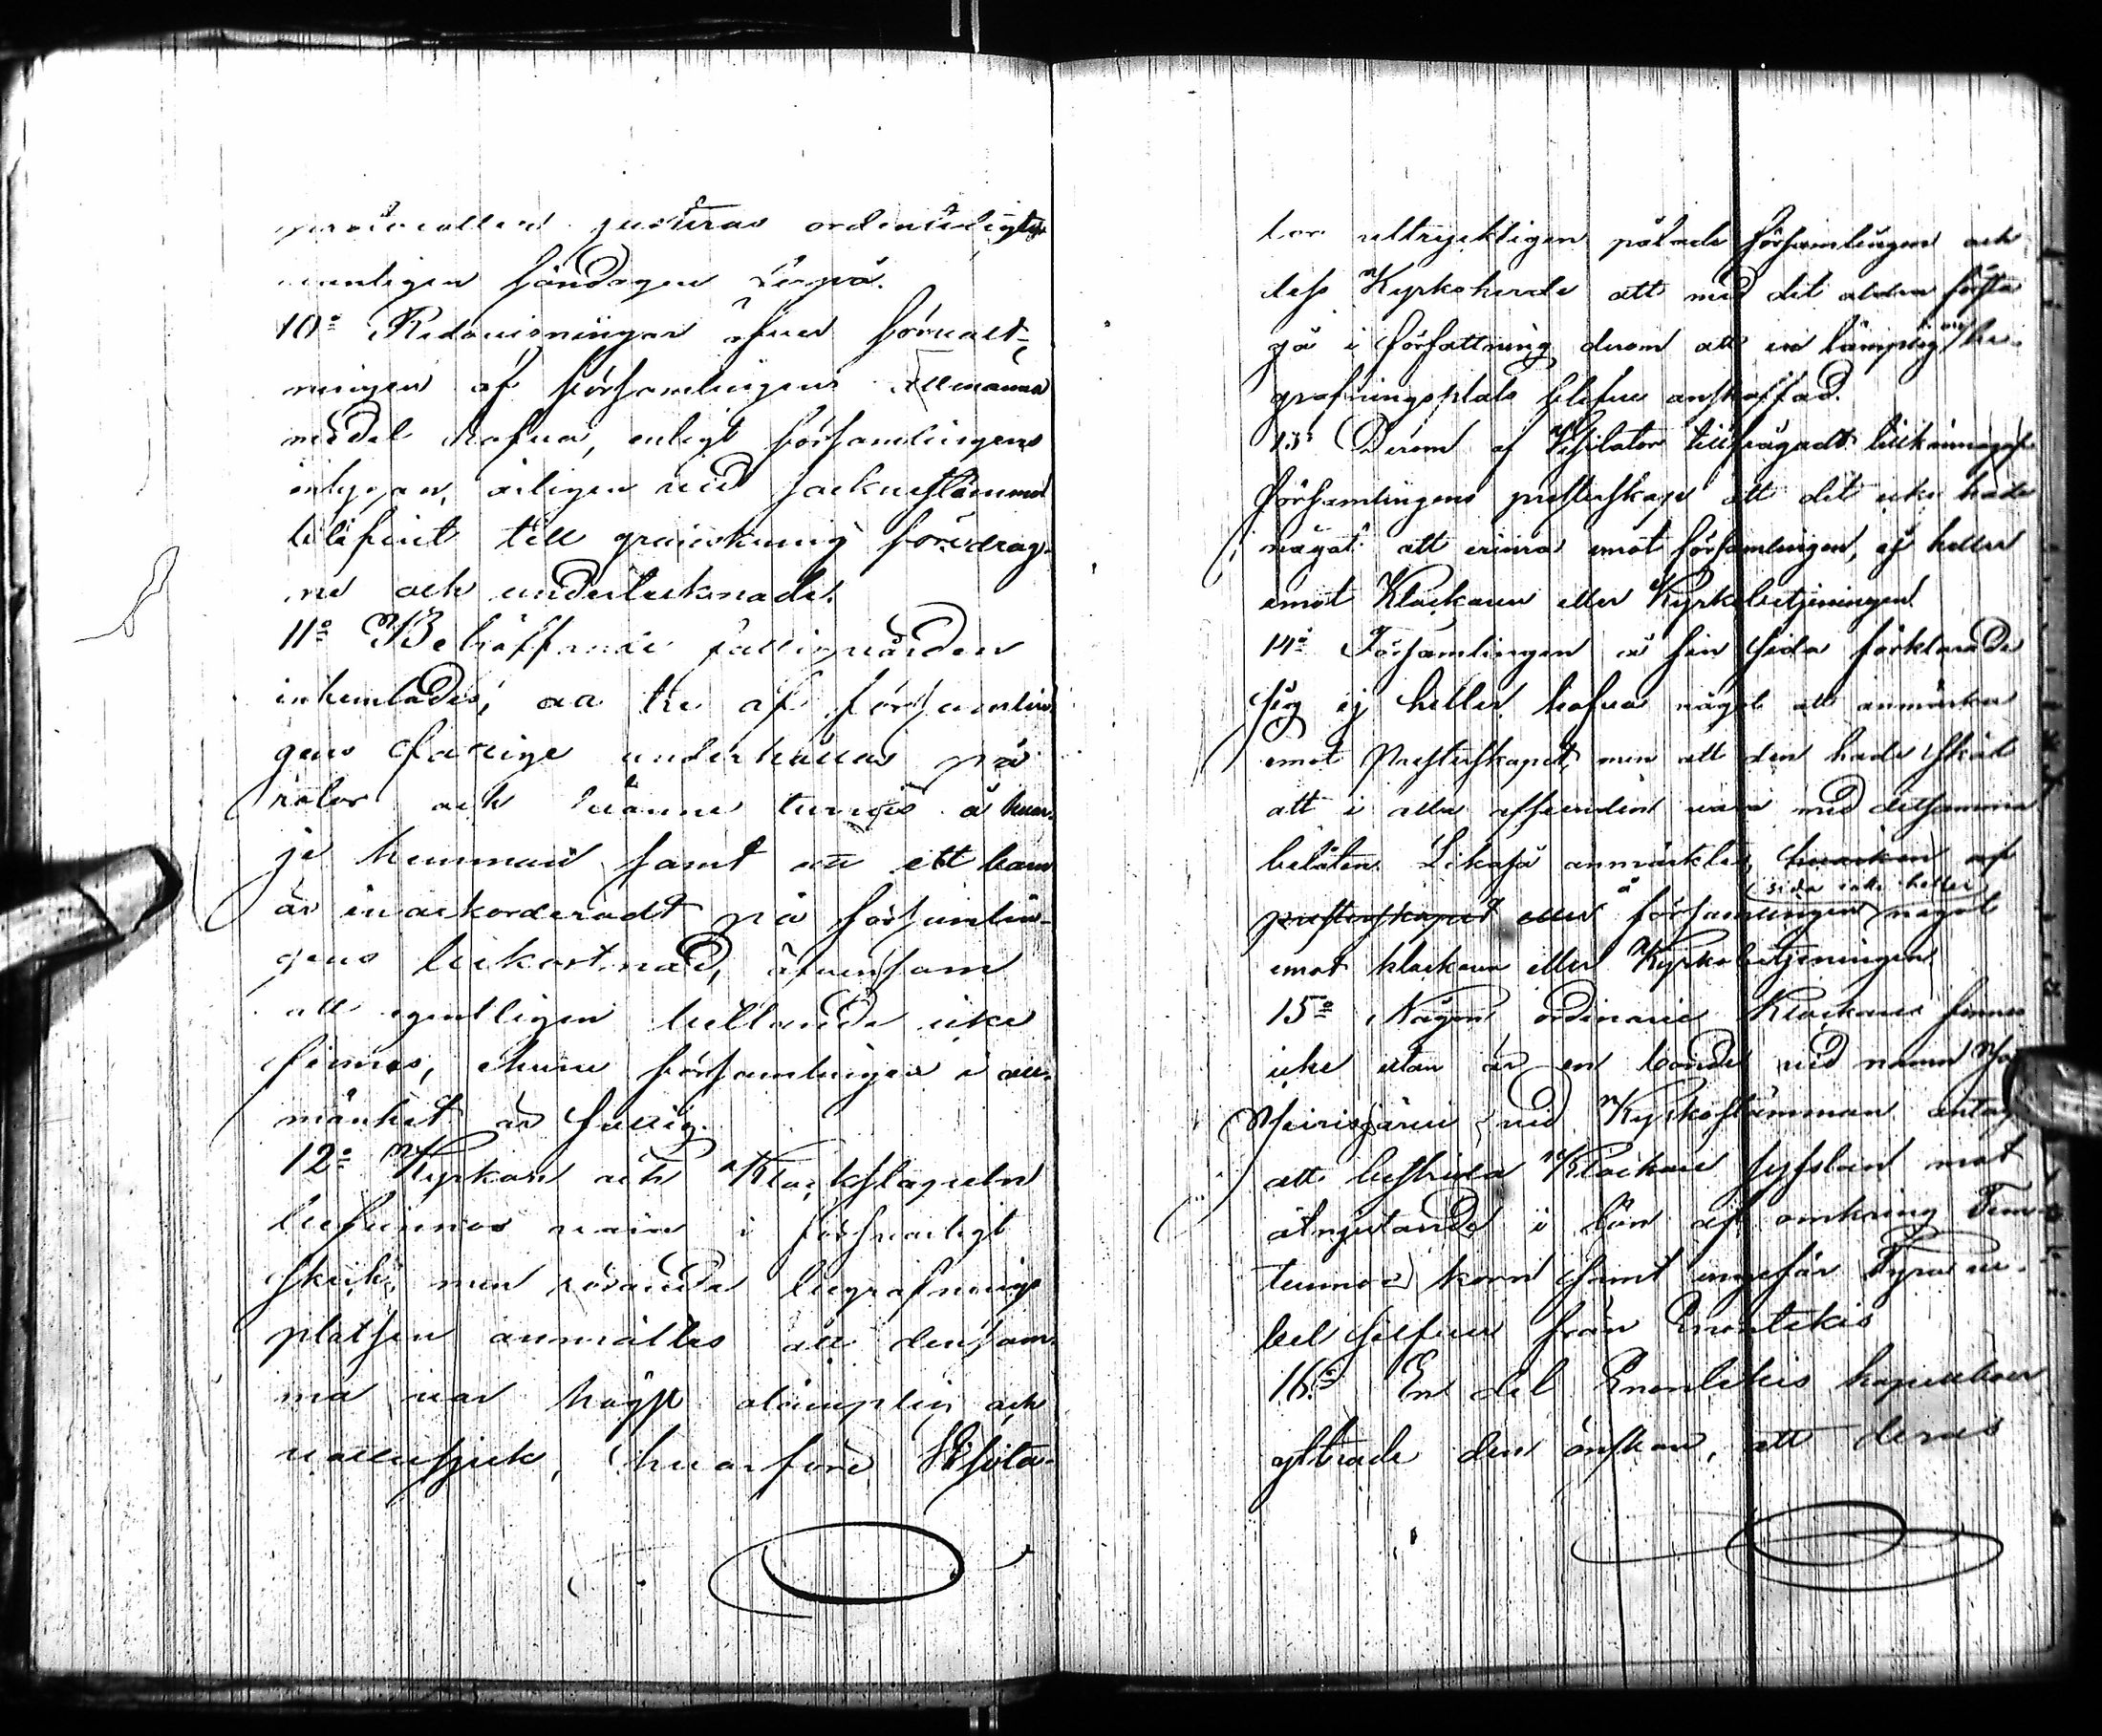 protocollen justeras ordentligtvis
vanligen söndagen derpå.
10:o Redovisningar öfver förvalt-
ningen af församlingens Allmänna
medel hafva, enligt församlingens
intygan, årligen vid socknestämma
blifvit till granskning föredrag-
ne och undertecknade.
11:o Beträffande fattigvården
inhemtades, att tre af församlin-
gens fattige underhållas på
rotar och människor turvis å hvar-
je hemman samt att ett barn
är inackorderadt på församlin-
gens bekostnad, äfvensom
att egentligen bettlande icke
finnes, ehuru församlingen i all-
mänhet är fattig.
12:o Kyrkan och Klockstapeln
befunnos vara i försvarligt
skick, men rörande begrafnings
platsen anmältes att densam-
ma var högst olämplig och
vattusjuk, hvarföre Visita-
tor uttryckligen pålade församlingen och
dess Kyrkoherde att med det aldra första
gå i författning derom att en lämplig be-
grafningsplats blefve anskaffad.
13:o Derom af Visitator tillfrågadt tillkännagaf
församlingens presterskap att det icke hade
något att erinra emot församlingen, ej heller
emot Klockaren eller Kyrkobetjeningen.
14:o Församlingen å sin sida förklarade
sig ej heller hafva något att anmärka
emot Presterskapet, men att den hade skäl
att i alla afseenden vara med detsamma
belåten. Likaså anmärktes, hvarken af
presterskapet eller å församlingen sida icke heller något
emot klockaren eller Kyrkobetjeningen.
15:o Någon ordinarie Klockare finnes
icke utan är en bonde vid namn
vid Kyrkostämman antag
att bestrida Klockare sysslan mot
åtnjutande i lön af omkring Fem
tunnor korn samt ungefär Fyra ru-
bel silfver från Enontekis
16:o En del Enontekis kapellboer
yttrade den önskan, att deras